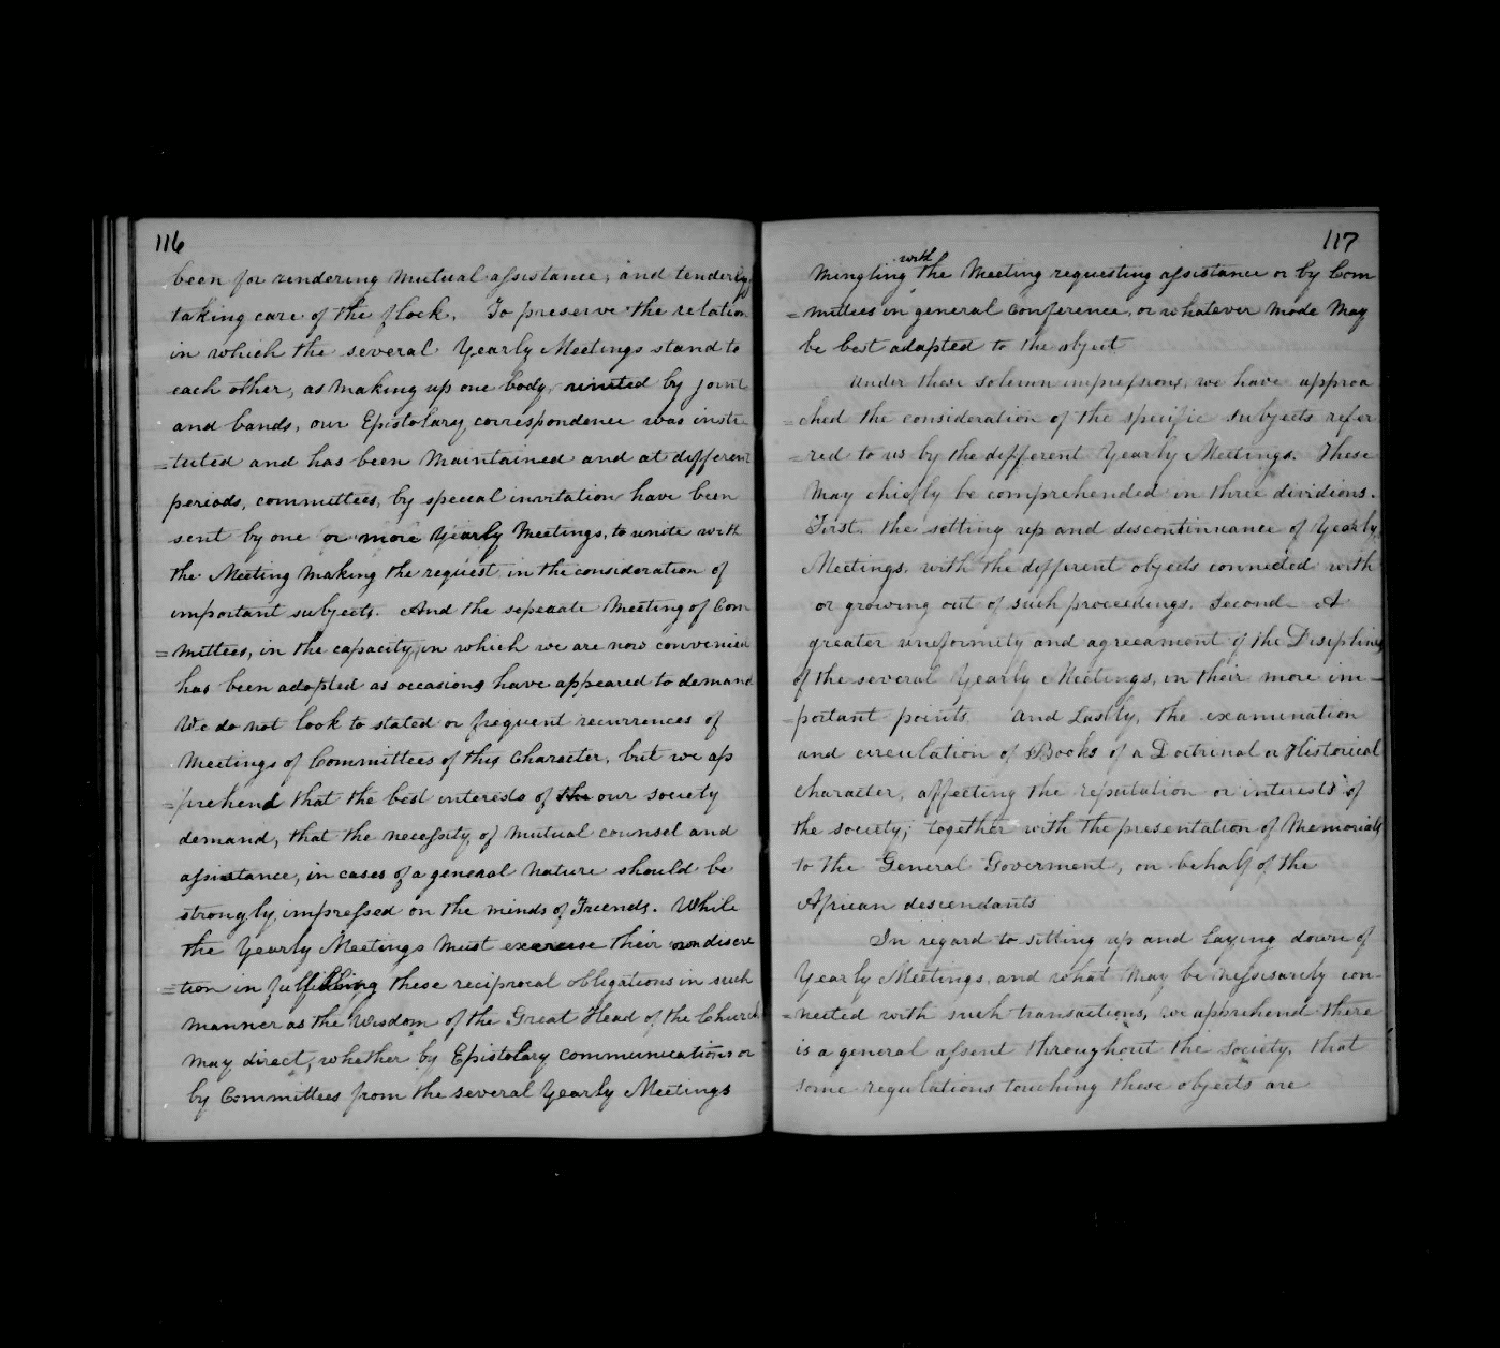 116
been for rendering mutual assistance, and tenderly
taking care of the flock. To preserve the relation
in which the several Yearly Meetings stand to
each other, as making up one body, united by joint
and bands, our Epistolary correspondence was insti
=tuted and has been maintained and at different
periods, committees, by special invitation have been
sent by one or more Yearly Meetings, to unite with
the Meeting making the request in the consideration of
important subjects. And the seperate Meeting of Com
=mittees, in the capacity, in which we are now convened
has been adopted as occasions have appeared to demand
We do not look to stated or frequent recurrences of
Meetings of Committees of this Character, but we ap
=prehend that the best interests of the our society
demand, that the necessity of mutual counsel and
assistance, in cases of a general nature should be
strongly impressed on the minds of Friends. While
the Yearly Meetings must exercise their own discre
=tion in fulfilling these reciprocal obligations in such
manner as the Wisdom of the Great Head of the Church
may direct, whether by Epistolary communications or
by Committees from the several Yearly Meetings
117
with
Mingling the Meeting requesting assistance or by Com
=mittees in general Conference, or whatever mode may
be best adapted to the object
Under these solemn impressions, we have approa
=ched the consideration of the specific subjects refer
=red to us by the different Yearly Meetings. These
may chiefly be comprehended in three dividions.
First. the setting up and discontinuance of Yearly
Meetings, with the different objects connected with
or growing out of such proceedings. Second A
greater uniformity and agreeament of the Discipline
of the several Yearly Meetings, in their more im-
-portant points And Lastly, the examination
and circulation of Books of a Doctrinal or Historical
character, affecting the reputation or interests of
the society; together with the presentation of Memorials
to the General Goverment, on behalf of the
African descendants
In regard to sitting up and laying down of
Yearly Meetings, and what may be nessisarily con-
=nested with such transactions, we apprehend there
is a general assent throughout the society, that
some regulations touching these objects are